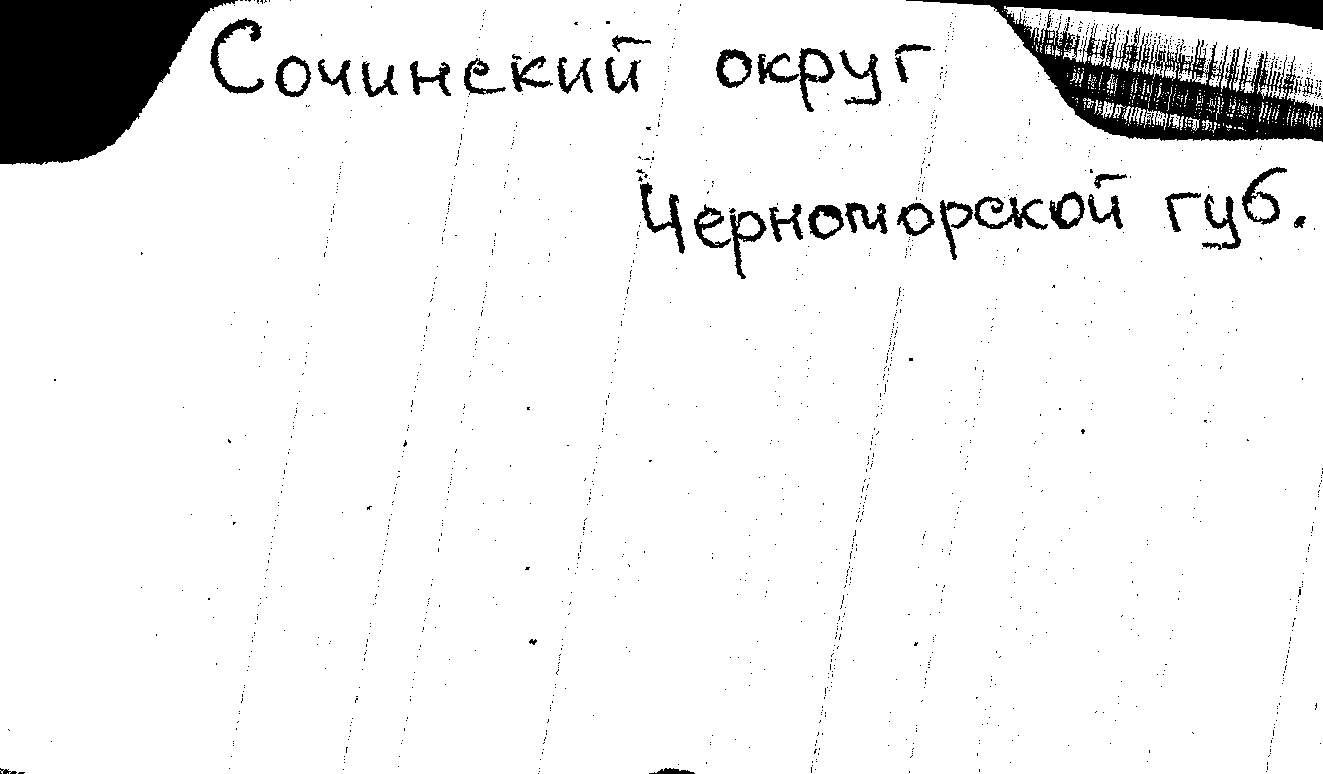 Сочинский округ
Черноморской губ.